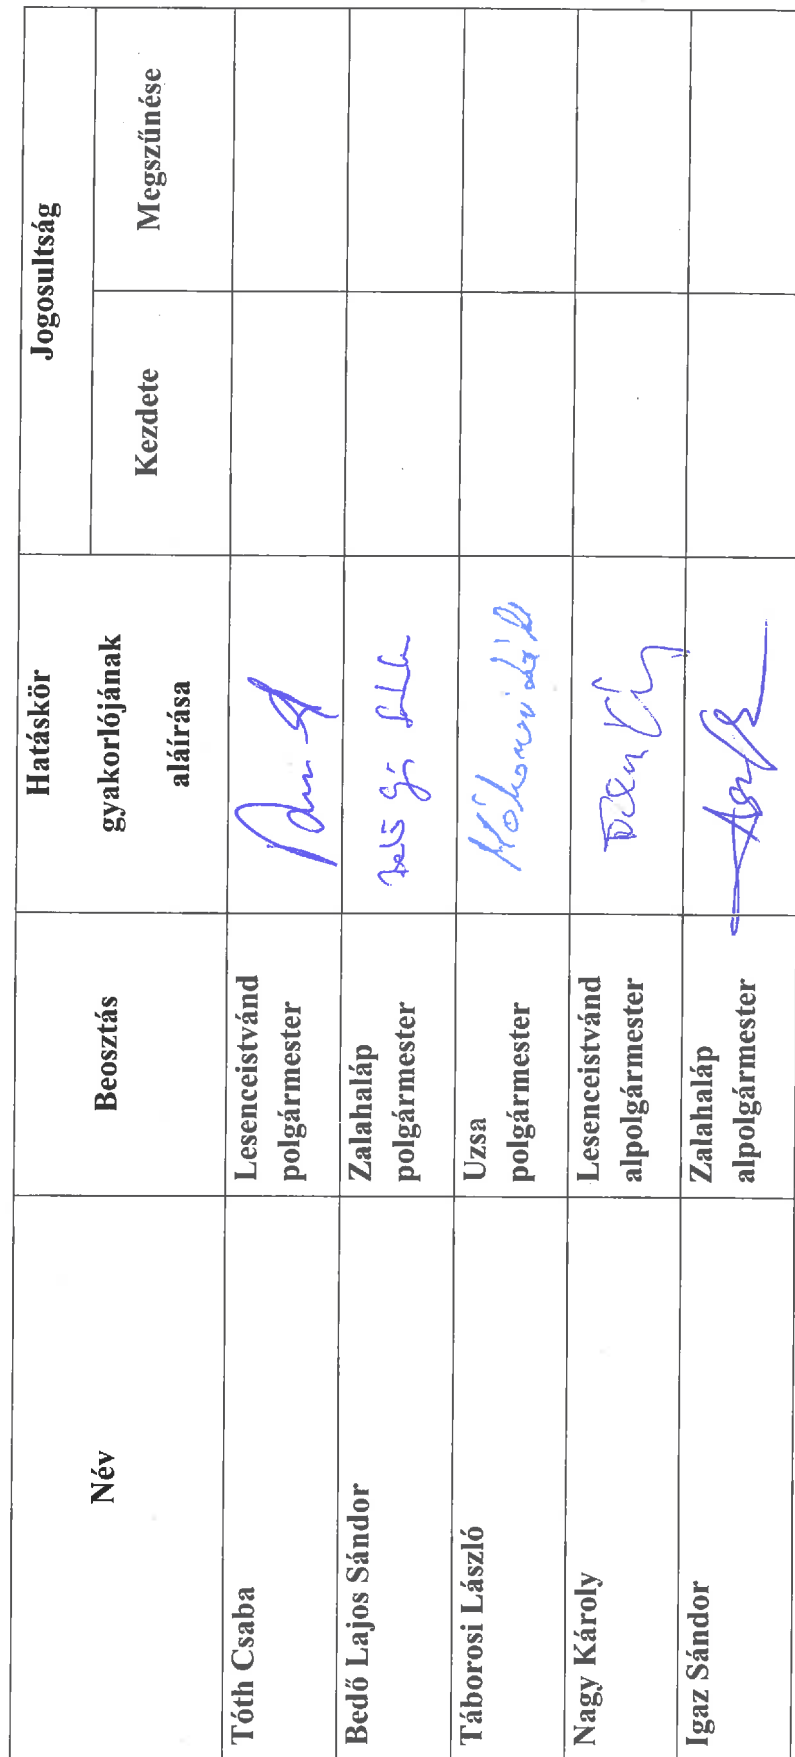 Név
Beosztás
Hatáskör
gyakorlójának
aláírása
Jogosultság
Kezdete
Megszűnése
Tóth Csaba
Lesenceistvánd
polgármester
Bedő Lajos Sándor
Zalahaláp
polgármester
Táborosi László
Uzsa
polgármester
Nagy Károly
Lesenceistvánd
alpolgármester
Igaz Sándor
Zalahaláp
alpolgármester